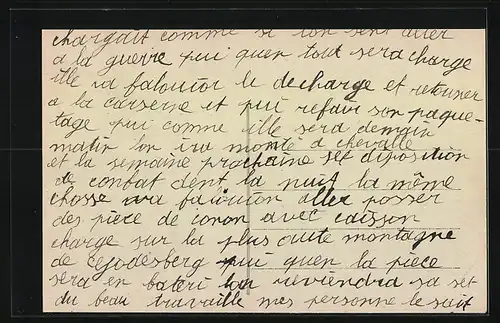 chargait comme si lon sent aller
a la guerre pui quen tout sera charge
ille va faloutor le decharge et retouner
a la caiserne et pui refair son paque-
tage pui comme ille sera demain
matin lon ira monté a chevalle
et la semaine prochaine set diposition
de conbat dent la nuit la même
chosse va faloutor aller posser
des pièce de conon avec caisson
charge sur la plus aute montagne
de Godesberg pui quen la pièce
sera en bateri lon reviendra sa set
du beau travaille mes personne le sait